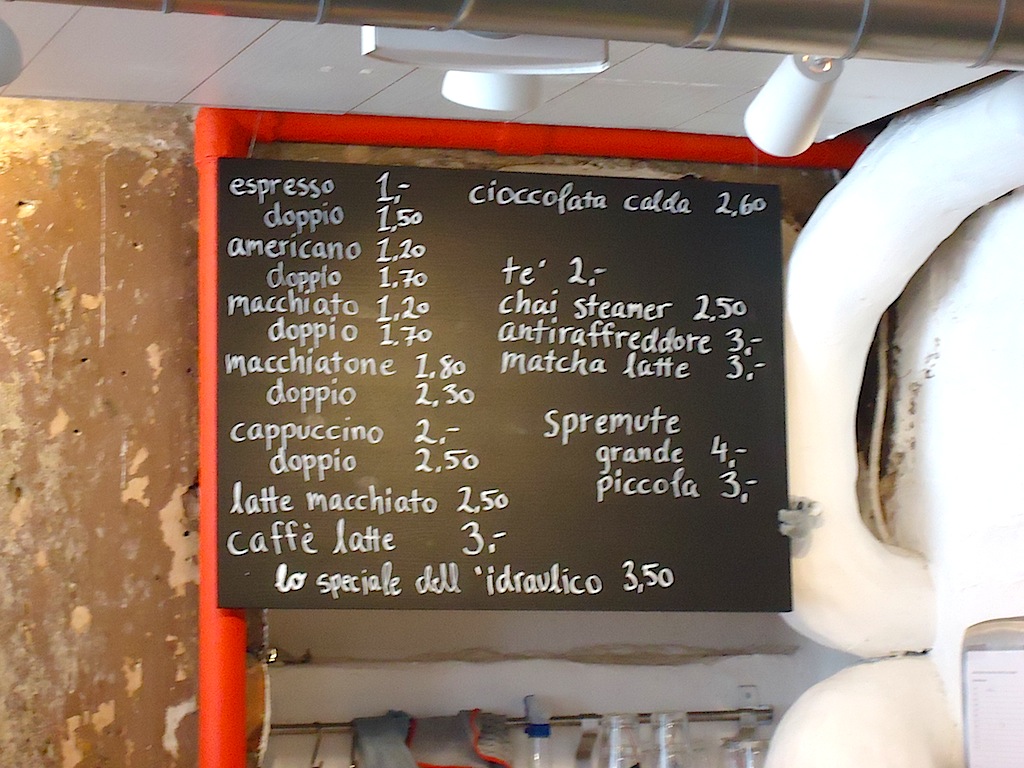 espresso 1,-
doppio 1,50
americano 1,20
doppio 1,70
macchiato 1,20
doppio 1,70
macchiatone 1,80
doppio 2,30
cappuccino 2,-
doppio 2,50
latte macchiato 2,50
caffè latte 3,-
lo speciale dell'idraulico 3,50
cioccolata calda 2,60
te' 2,-
chai steamer 2,50
antiraffreddore 3,-
matcha latte 3,-
Spremute
grande 4,-
piccola 3,-